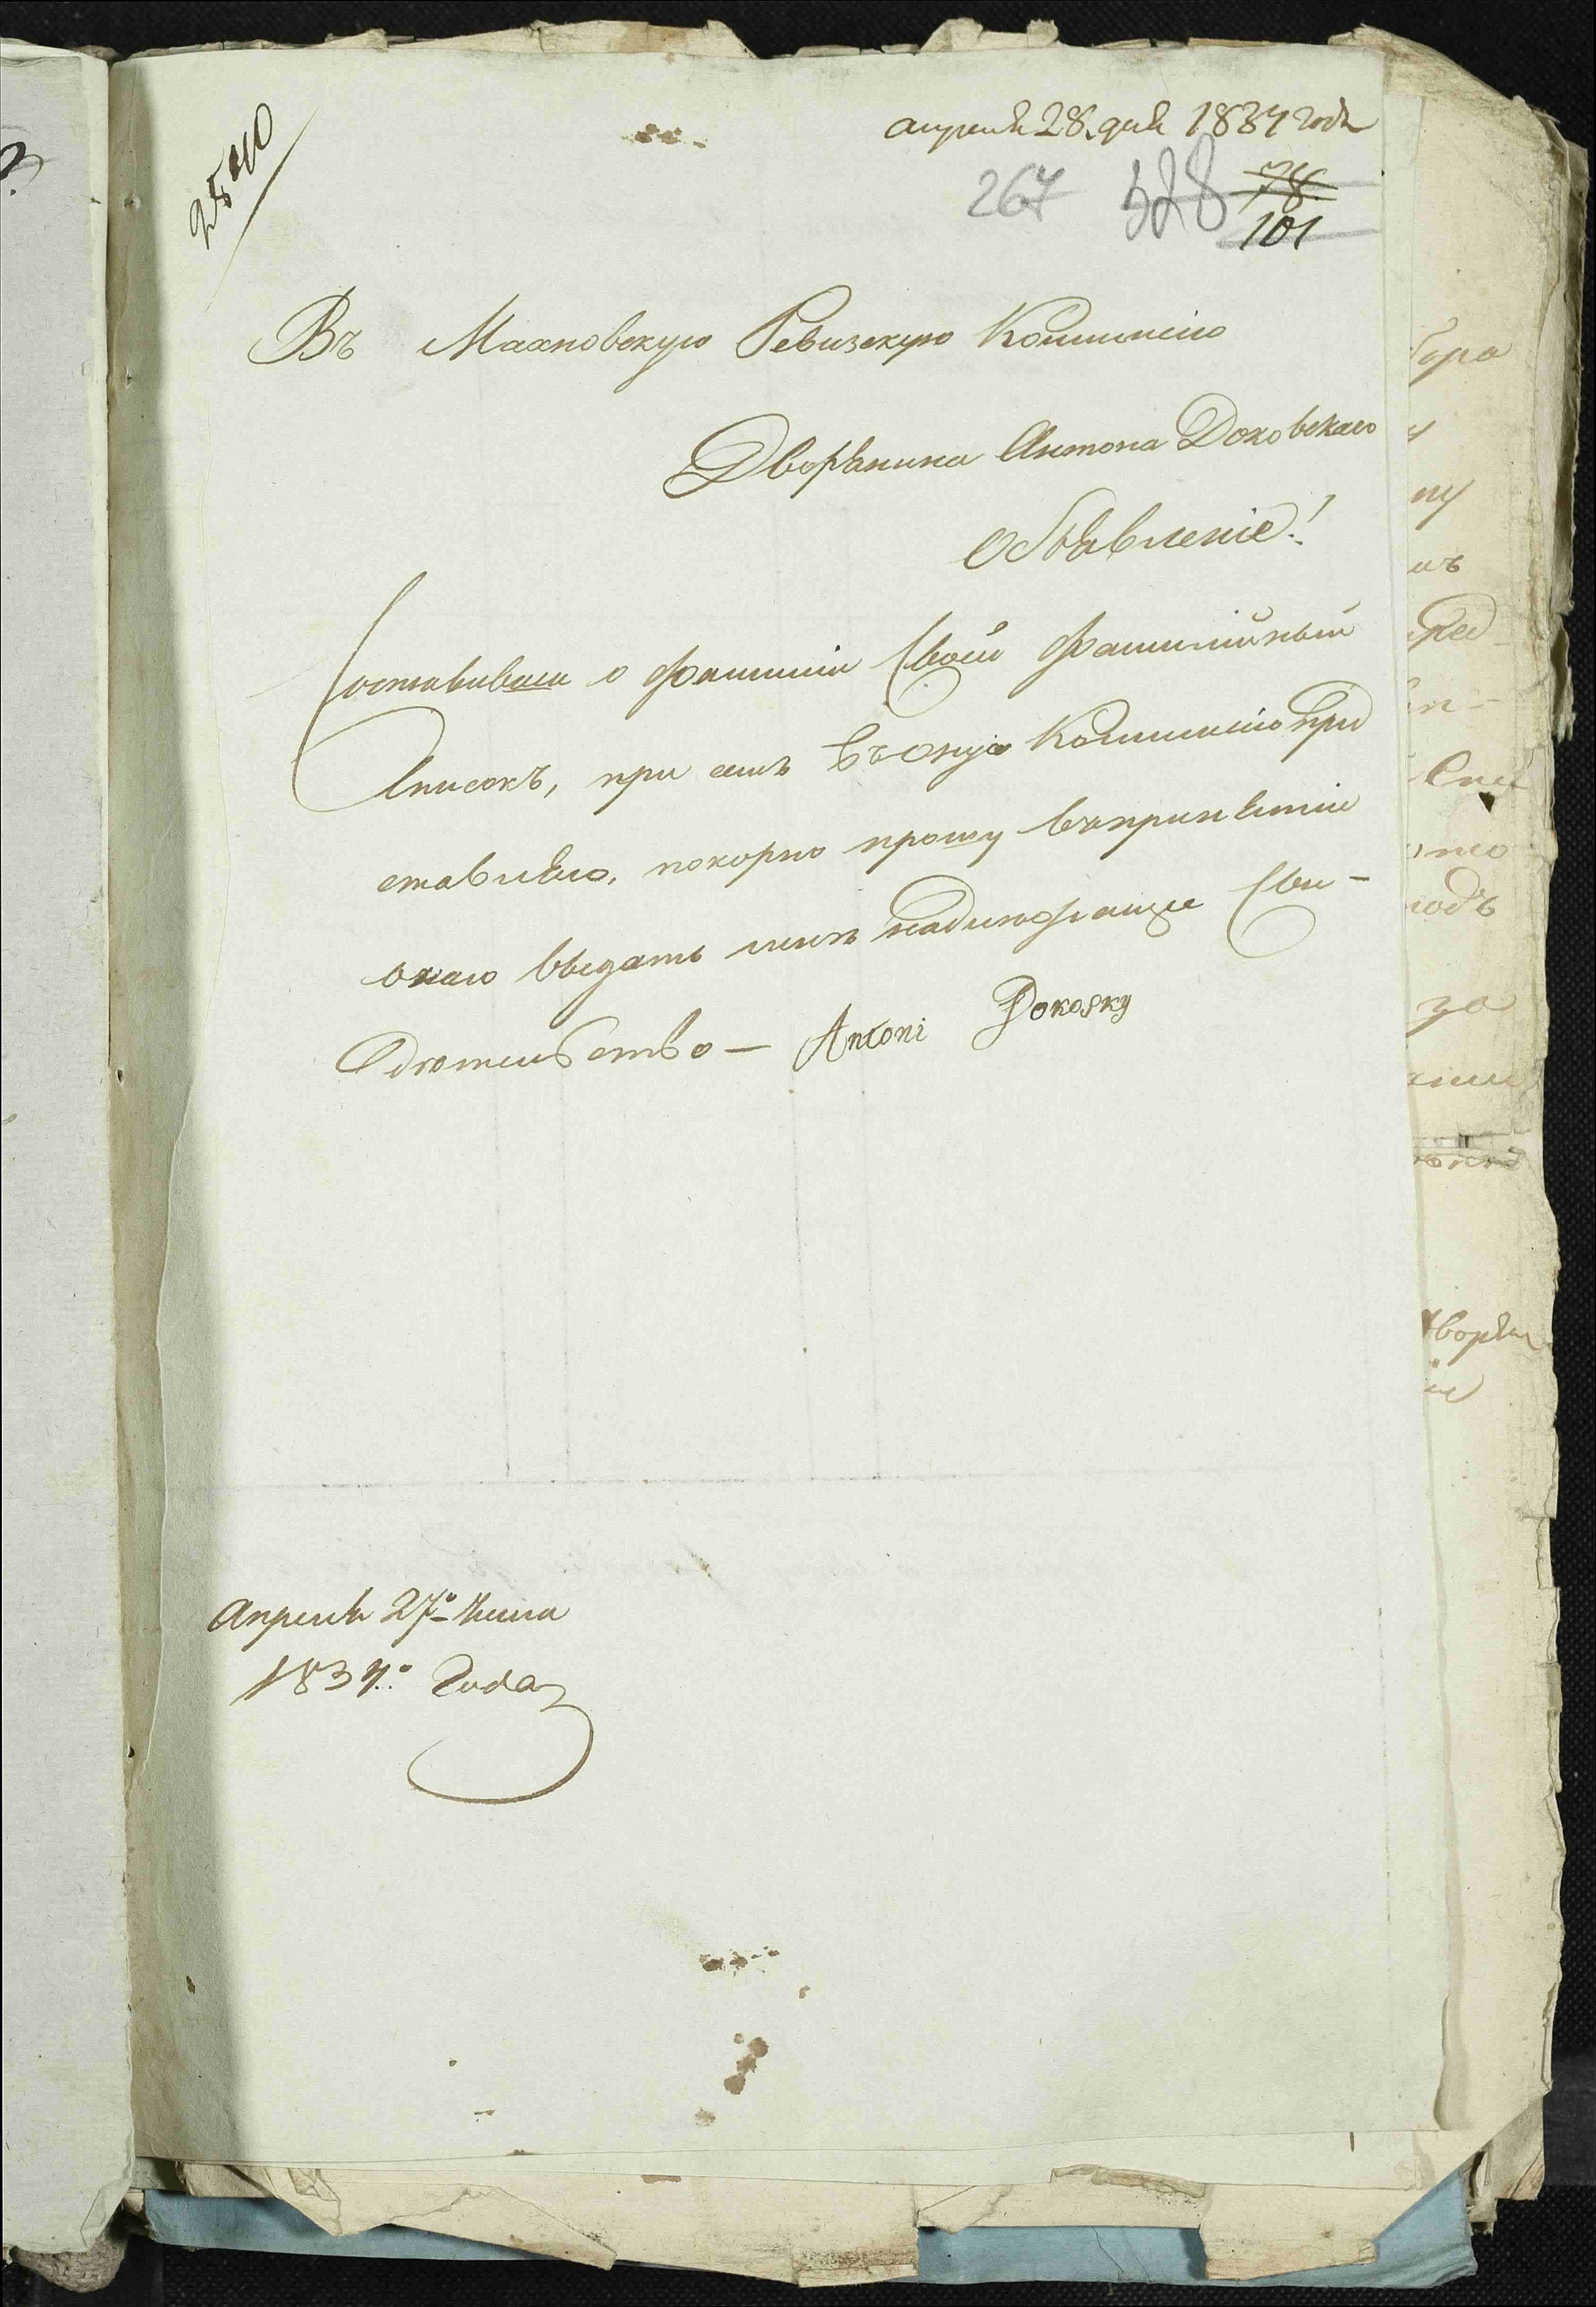 2840
апреля 28. дня 1834 года
267 328 78
101
Въ Махновскую Ревизскую Коммисію
Дворянина Антона Доковскаго
Объявленіе!
Составивши о фамиліи Своей Фамилійный
Списокъ, при семъ въ оную Коммисію пред
ставляю, покорно прошу въпринятіи
онаго выдать мнѣ надлежащее Сви-
Дѣтельство — Antoni Dokosky
Апреля 27º числа
1834º Года